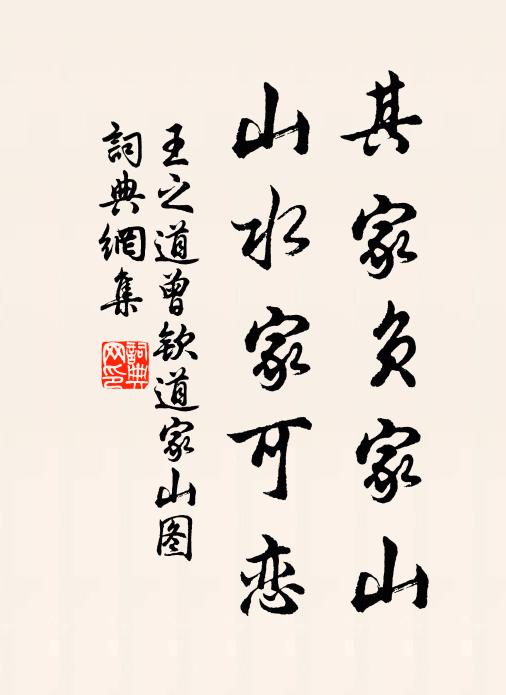 其家负家山
山水家可恋
王之道曾钦道家山图
詞典網集
詞典网印